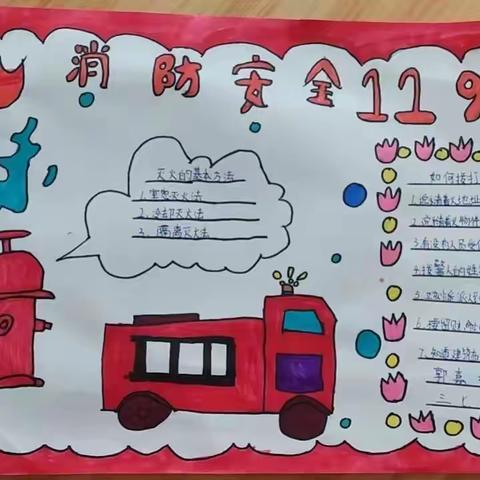 消防安全119
灭火的基本方法
1.窒息灭火法
2.冷却灭火法
3.隔离灭火法
如何拨打
1.说清着火地址
2.说清着火物件
3.有没有人员受
4.报警人的姓
5.
6.
7.知道建筑
郭嘉
三